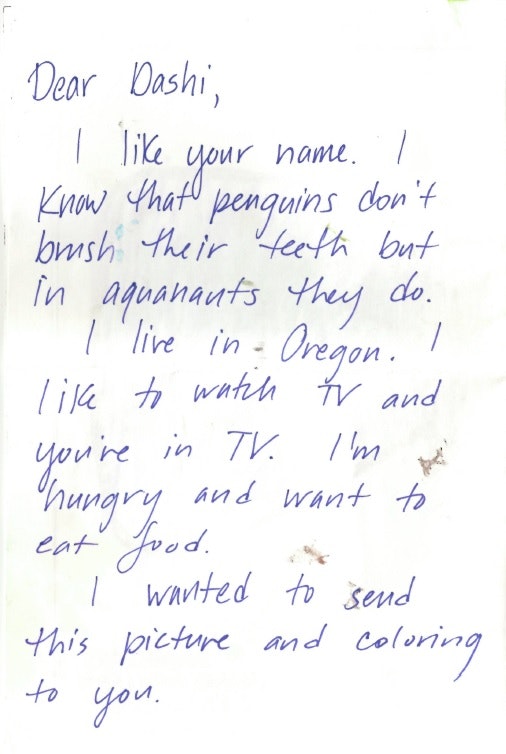 Dear Dashi,
I like your name. I
know that penguins don't
brush their teeth but
in aquanauts they do.
I live in Oregon. I
like to watch TV and
you're in TV. I'm
hungry and want to
eat food.
I wanted to send
this picture and coloring
to you.